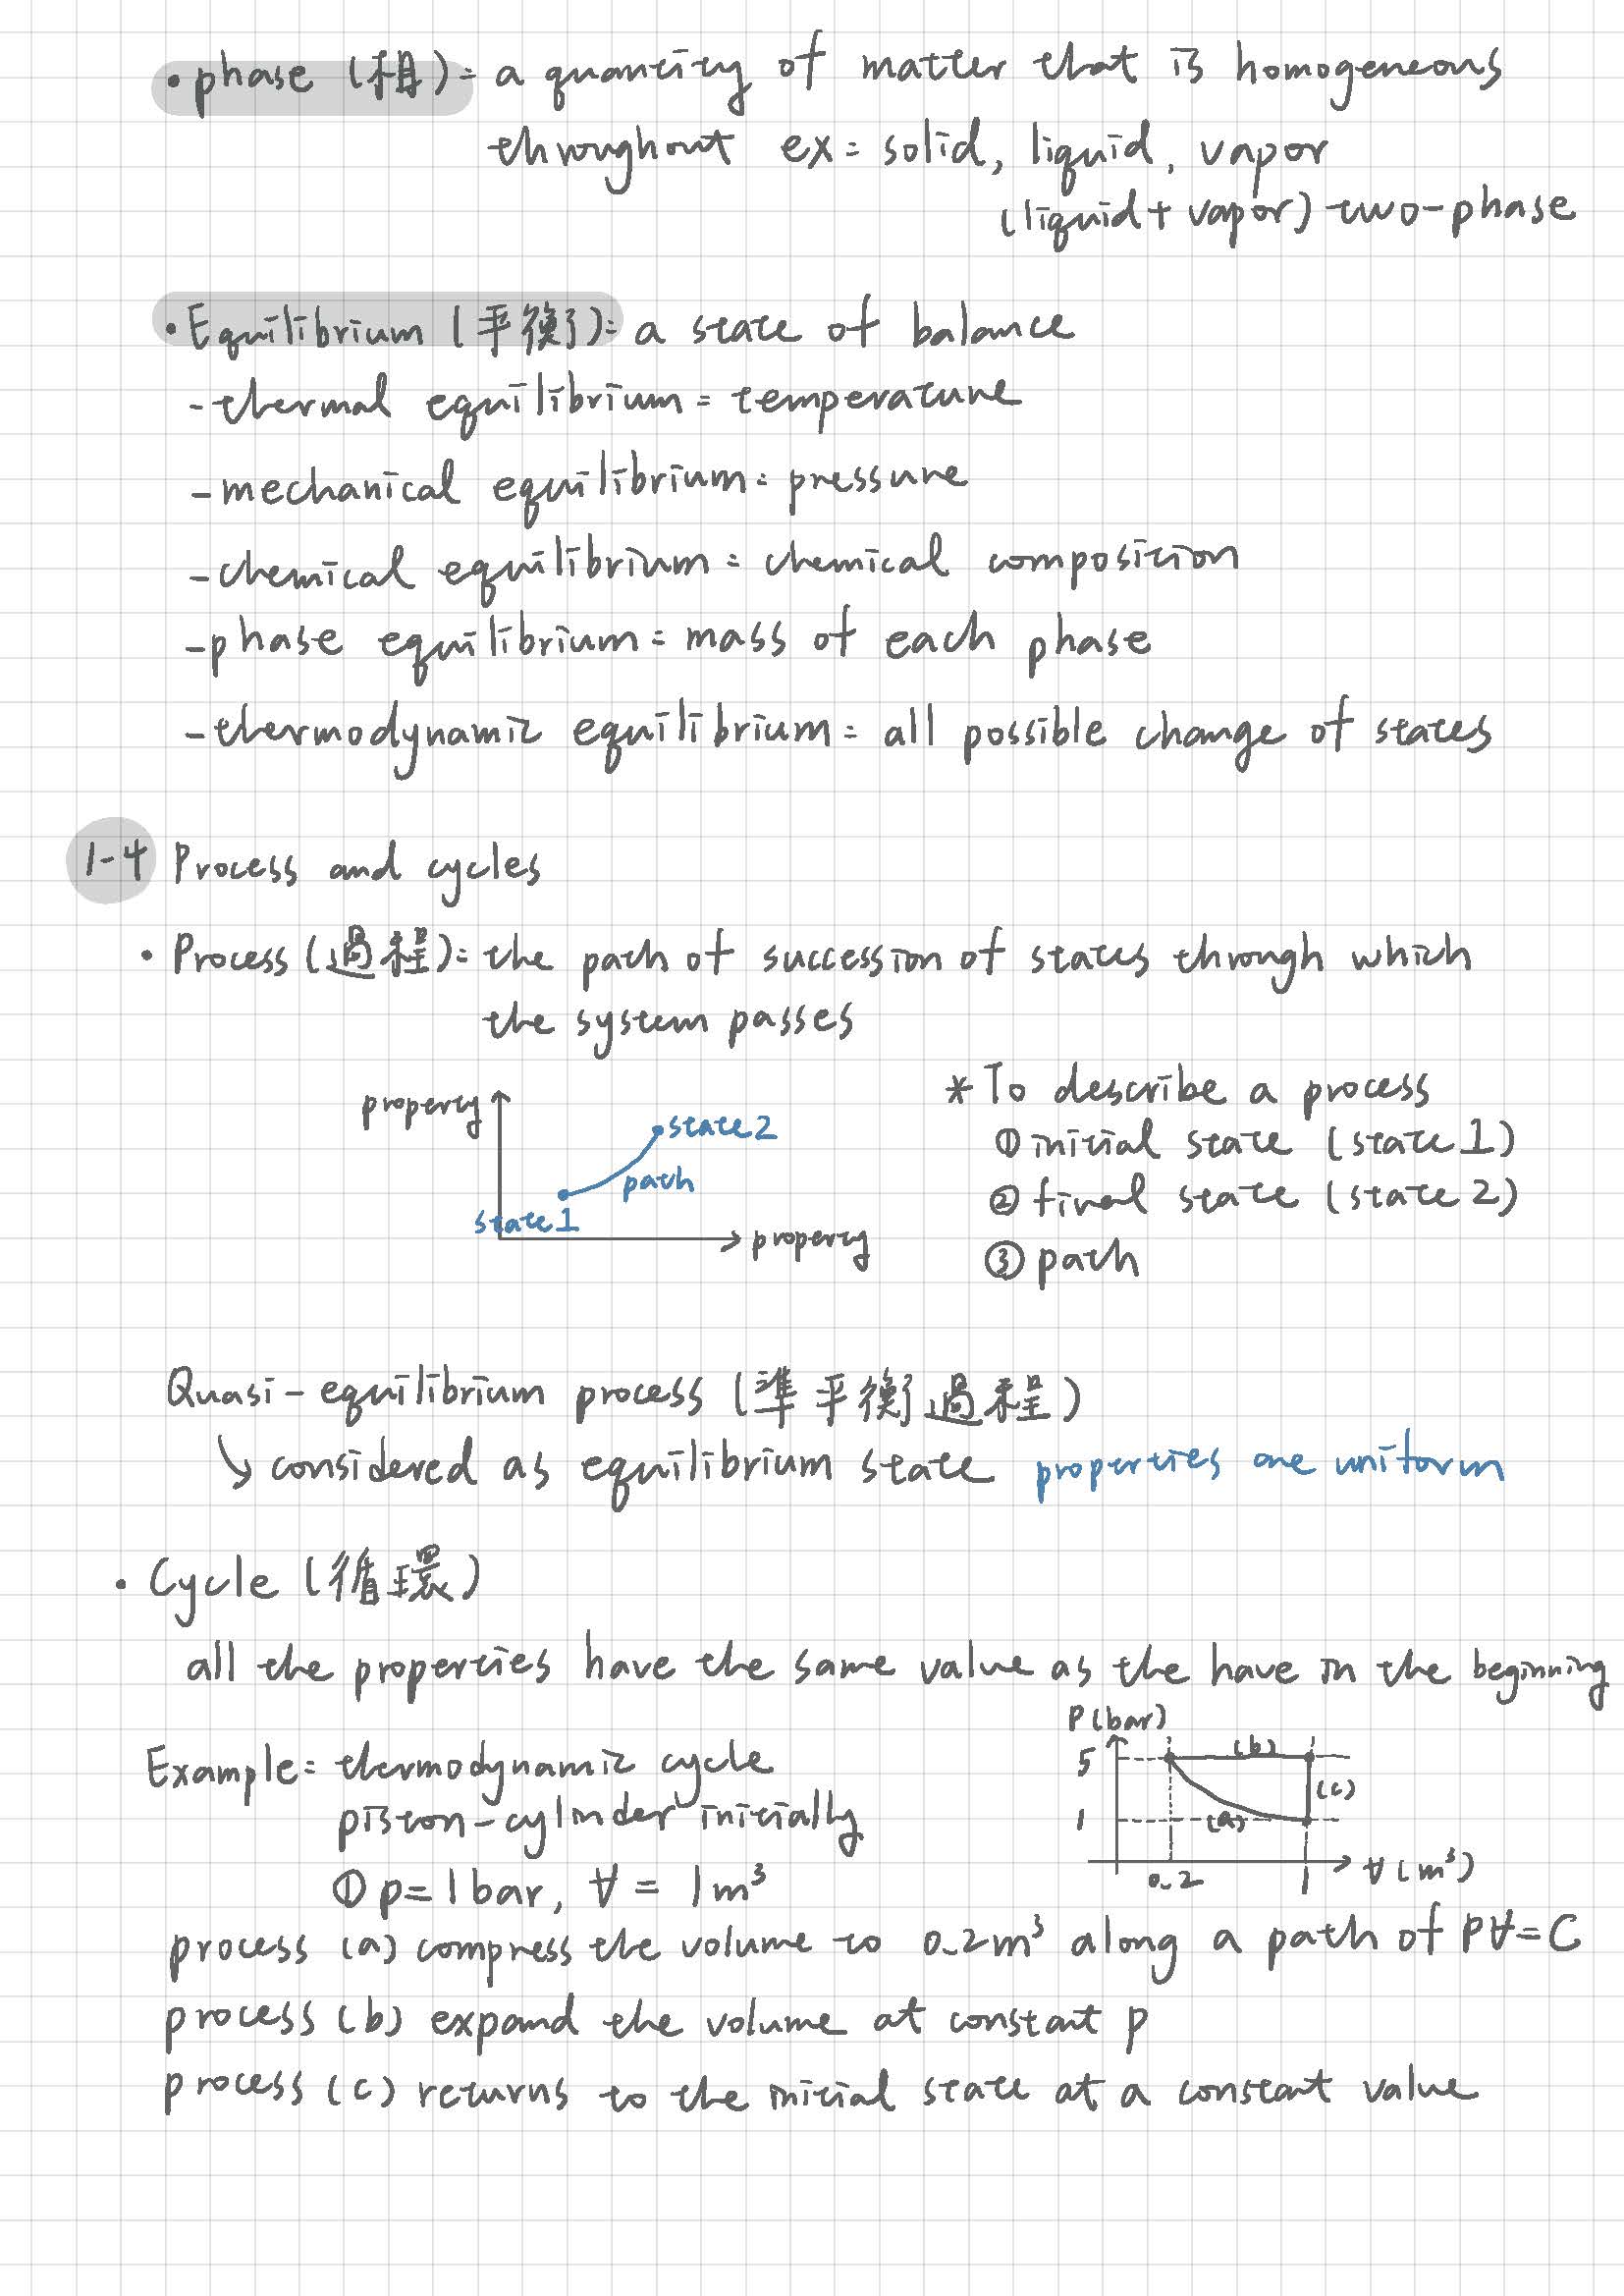 • phase (相): a quantity of matter that is homogeneous
throughout ex: solid, liquid, vapor
(liquid + vapor) two-phase
• Equilibrium (平衡): a state of balance
- thermal equilibrium: temperature
- mechanical equilibrium: pressure
- chemical equilibrium: chemical composition
- phase equilibrium: mass of each phase
- thermodynamic equilibrium: all possible change of states
1-4 Process and cycles
• Process (過程): the path of succession of states through which
the system passes
property
state 2
path
state 1
property
* To describe a process
① initial state (state 1)
② final state (state 2)
③ path
Quasi-equilibrium process (準平衡過程)
↘ considered as equilibrium state properties are uniform
• Cycle (循環)
all the properties have the same value as the have in the beginning
Example: thermodynamic cycle
piston-cylinder initially
① p = 1 bar, V = 1 m³
P (bar)
5 (b)
(c)
1 (a)
0.2 1 V (m³)
process (a) compress the volume to 0.2 m³ along a path of PV = C
process (b) expand the volume at constant p
process (c) returns to the initial state at a constant value